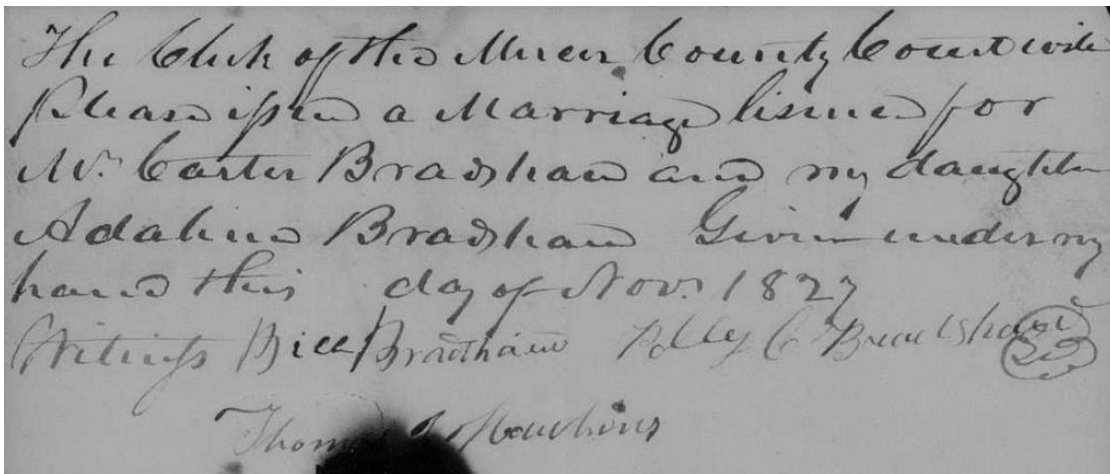 The Clerk of the Mercer County Court will
please issue a Marriage lisence for
Mr. Carter Bradshaw and my daughter
Adaline Bradshaw Given under my
hand this day of Nov. 1827
Witness Bill Bradshaw Polly C Bradshaw
Thomas